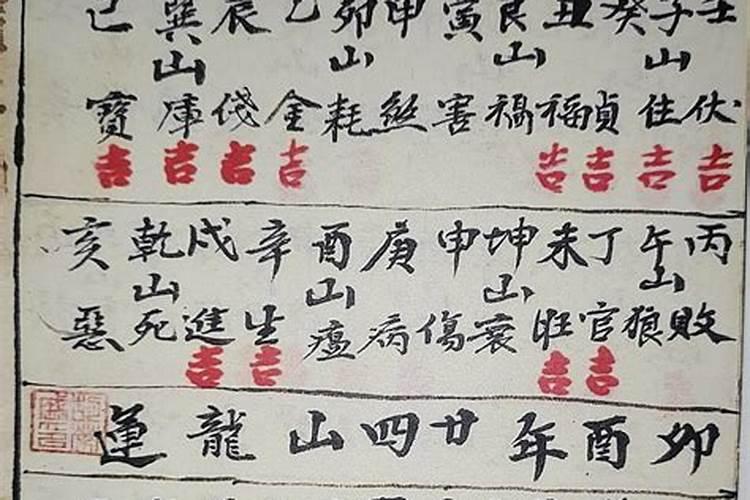 壬子癸丑艮寅甲卯乙辰巽巳
山山山山
伏位貞福禍害煞耗金錢庫寶
吉吉吉吉吉吉吉吉
丙午丁未坤申庚酉辛戌乾亥
山山山山
敗狼官旺衰傷病瘟生進死惡
吉吉吉吉
卯酉年廿四山龍運